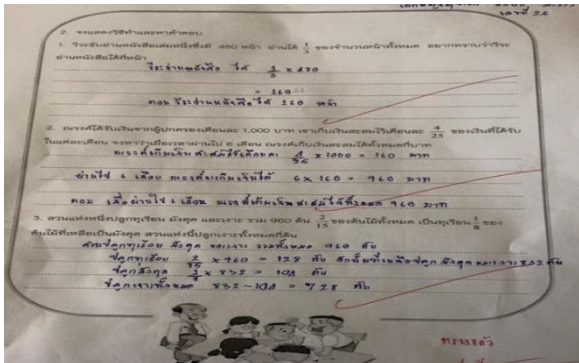 เลขที่ 26
2. จงแสดงวิธีทำและหาคำตอบ
1. วีระขับอ่านหนังสือเล่มหนึ่งซึ่งมี 480 หน้า อ่านได้ 1/3 ของจำนวนหน้าทั้งหมด อยากทราบว่าวีระ
อ่านหนังสือได้กี่หน้า
วีระอ่านหนังสือ ได้ 1/3 x 480
= 160
ตอบ วีระอ่านหนังสือได้ 160 หน้า
2. ณรงค์ได้รับเงินจากผู้ปกครองเดือนละ 1,000 บาท เขาเก็บเงินสะสมไว้เดือนละ 4/25 ของเงินที่ได้รับ
ในแต่ละเดือน จงหาว่าเมื่อเวลาผ่านไป 6 เดือน ณรงค์เก็บเงินสะสมได้ทั้งหมดกี่บาท
ณรงค์เก็บเงินสะสมไว้เดือนละ 4/25 x 1000 = 160 บาท
ผ่านไป 6 เดือน ณรงค์จะเก็บเงินได้ 6 x 160 = 960 บาท
ตอบ เมื่อผ่านไป 6 เดือน ณรงค์เก็บเงินสะสมได้ทั้งหมด 960 บาท
3. สวนแห่งหนึ่งปลูกทุเรียน มังคุด และเงาะ รวม 960 ต้น 2/15 ของต้นไม้ทั้งหมด เป็นทุเรียน 1/8 ของ
ต้นไม้ที่เหลือเป็นมังคุด สวนแห่งนี้ปลูกเงาะทั้งหมดกี่ต้น
สวนปลูกทุเรียน มังคุด และเงาะ รวมทั้งหมด 960 ต้น
ปลูกทุเรียน 2/15 x 960 = 128 ต้น ดังนั้นที่เหลือปลูก มังคุด และเงาะ 832 ต้น
ปลูกมังคุด 1/8 x 832 = 104 ต้น
ปลูกเงาะทั้งหมด 832 - 104 = 728 ต้น
ตรวจแล้ว